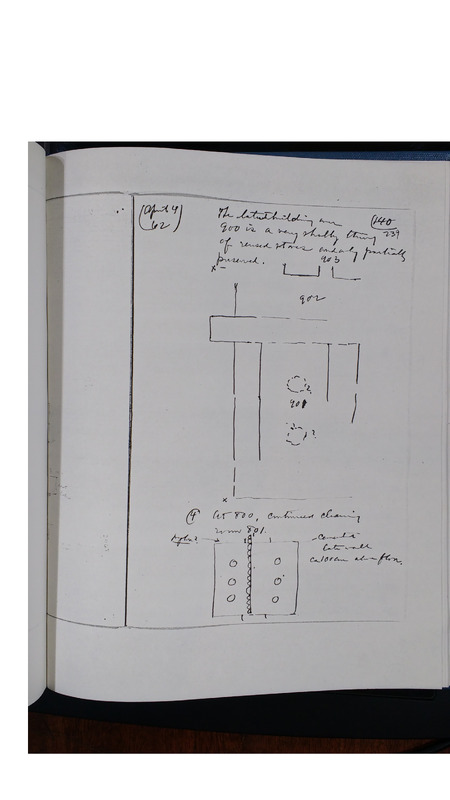 (April 4
62)
The latest building over
(140
239
900 is a very shabby thing
of reused stones and only partially
preserved.
903
902
?
901
?
④ At 800, continued clearing
room 801.
late wall